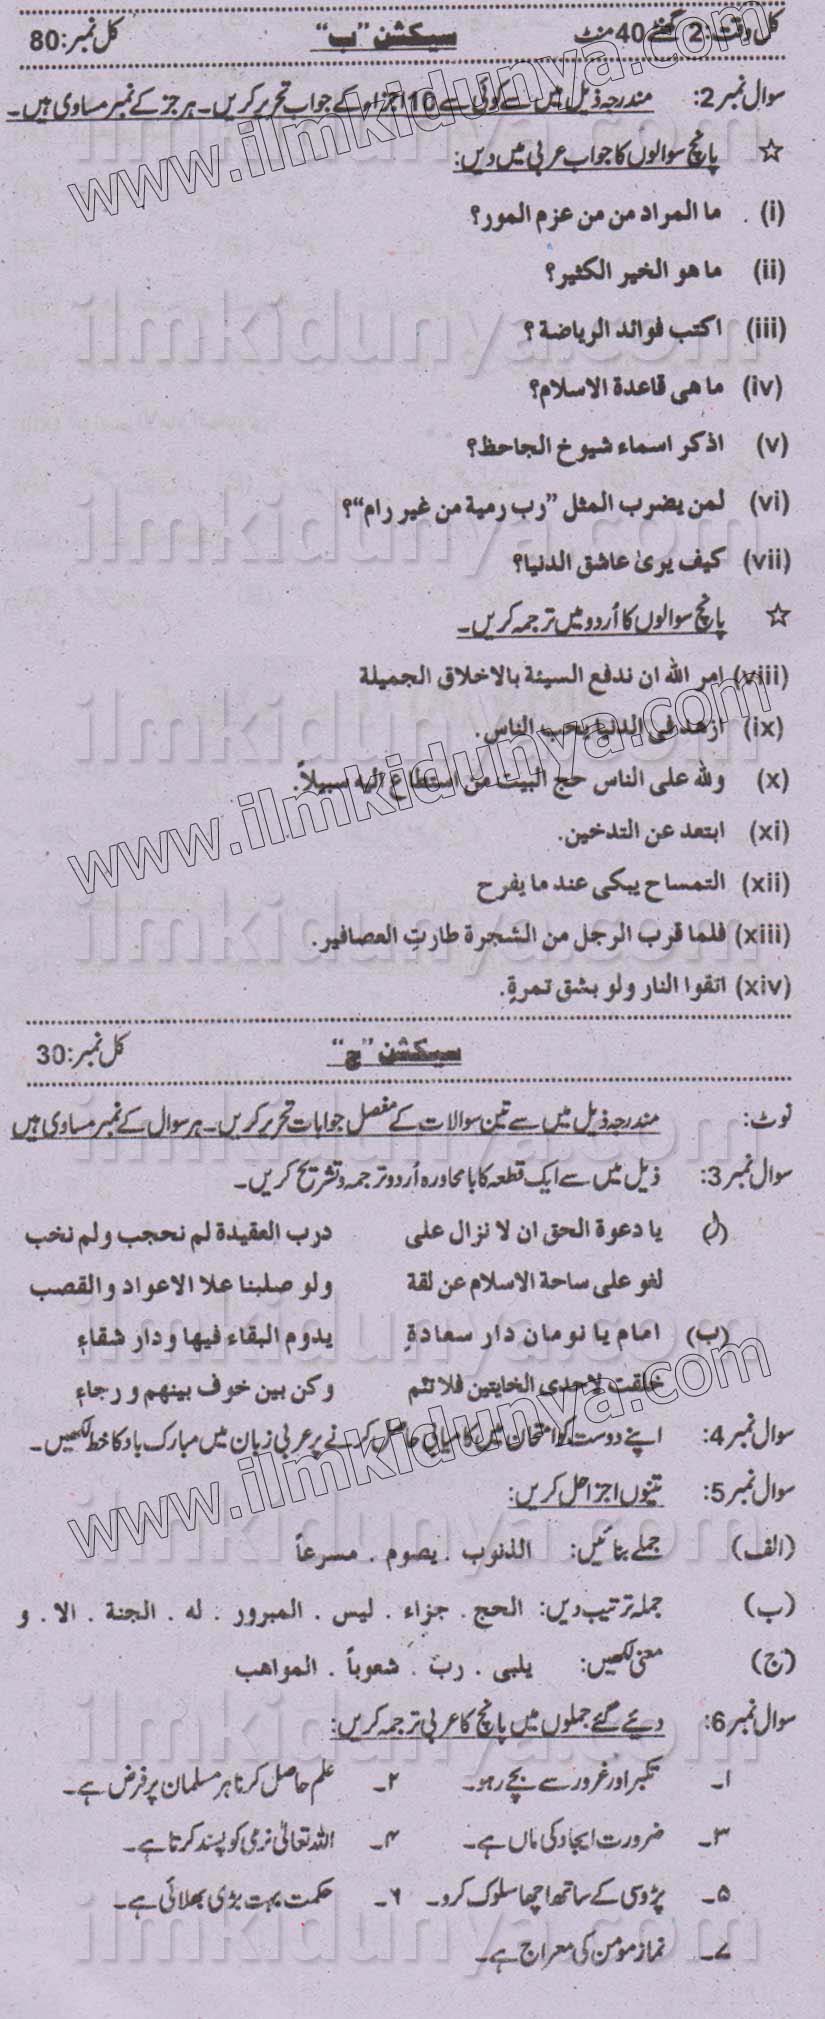 کل وقت: 2 گھنٹے 40 منٹ سیکشن "ب" کل نمبر: 80
سوال نمبر 2: مندرجہ ذیل میں سے کوئی سے 10 اجزاء کے جواب تحریر کریں۔ ہر جز کے نمبر مساوی ہیں۔
☆ پانچ سوالوں کا جواب عربی میں دیں:
(i) ما المراد من من عزم المور؟
(ii) ما هو الخير الكثير؟
(iii) اكتب فوائد الرياضة؟
(iv) ما هى قاعدة الاسلام؟
(v) اذكر اسماء شيوخ الجاحظ؟
(vi) لمن يضرب المثل "رب رمية من غير رام"؟
(vii) كيف يرىٰ عاشق الدنيا؟
☆ پانچ سوالوں کا اُردو میں ترجمہ کریں۔
(viii) امر الله ان ندفع السيئة بالاخلاق الجميلة
(ix) ازهد فى الدنيا يحب الناس.
(x) ولله على الناس حج البيت من استطاع اليه سبيلاً.
(xi) ابتعد عن التدخين.
(xii) التمساح يبكى عند ما يفرح
(xiii) فلما قرب الرجل من الشجرة طارتِ العصافير.
(xiv) اتقوا النار ولو بشق تمرةٍ.
سیکشن "ج" کل نمبر: 30
نوٹ: مندرجہ ذیل میں سے تین سوالات کے مفصل جوابات تحریر کریں۔ ہر سوال کے نمبر مساوی ہیں
سوال نمبر 3: ذیل میں سے ایک قطعہ کا بامحاورہ اُردو ترجمہ و تشریح کریں۔
(ل) يا دعوة الحق ان لا نزال على درب العقيدة لم نحجب ولم نخب
لغو على ساحة الاسلام عن لقة ولو صلبنا علا الاعواد والقصب
(ب) امام يا نومان دار سعادةٍ يدوم البقاء فيها ودار شقاءٍ
خلقت لاحدى الخايتين فلا تنم وكن بين خوف بينهم ورجاءٍ
سوال نمبر 4: اپنے دوست کو امتحان میں کامیابی حاصل کرنے پر عربی زبان میں مبارک باد کا خط لکھیں۔
سوال نمبر 5: تینوں اجزا حل کریں:
(الف) جملے بنائیں: الذنوب . يصوم . مسرعاً
(ب) جملہ ترتیب دیں: الحج . جزاء . ليس . المبرور . له . الجنة . الا . و
(ج) معنی لکھیں: يلبى . ربّ . شعوباً . المواهب
سوال نمبر 6: دیئے گئے جملوں میں پانچ کا عربی ترجمہ کریں:
۱۔ تکبر اور غرور سے بچے رہو۔ ۲۔ علم حاصل کرنا ہر مسلمان پر فرض ہے۔
۳۔ ضرورت ایجاد کی ماں ہے۔ ۴۔ اللہ تعالیٰ نرمی کو پسند کرتا ہے۔
۵۔ پڑوسی کے ساتھ اچھا سلوک کرو۔ ۶۔ حکمت بہت بڑی بھلائی ہے۔
۷۔ نماز مومن کی معراج ہے۔
www.ilmkidunya.com